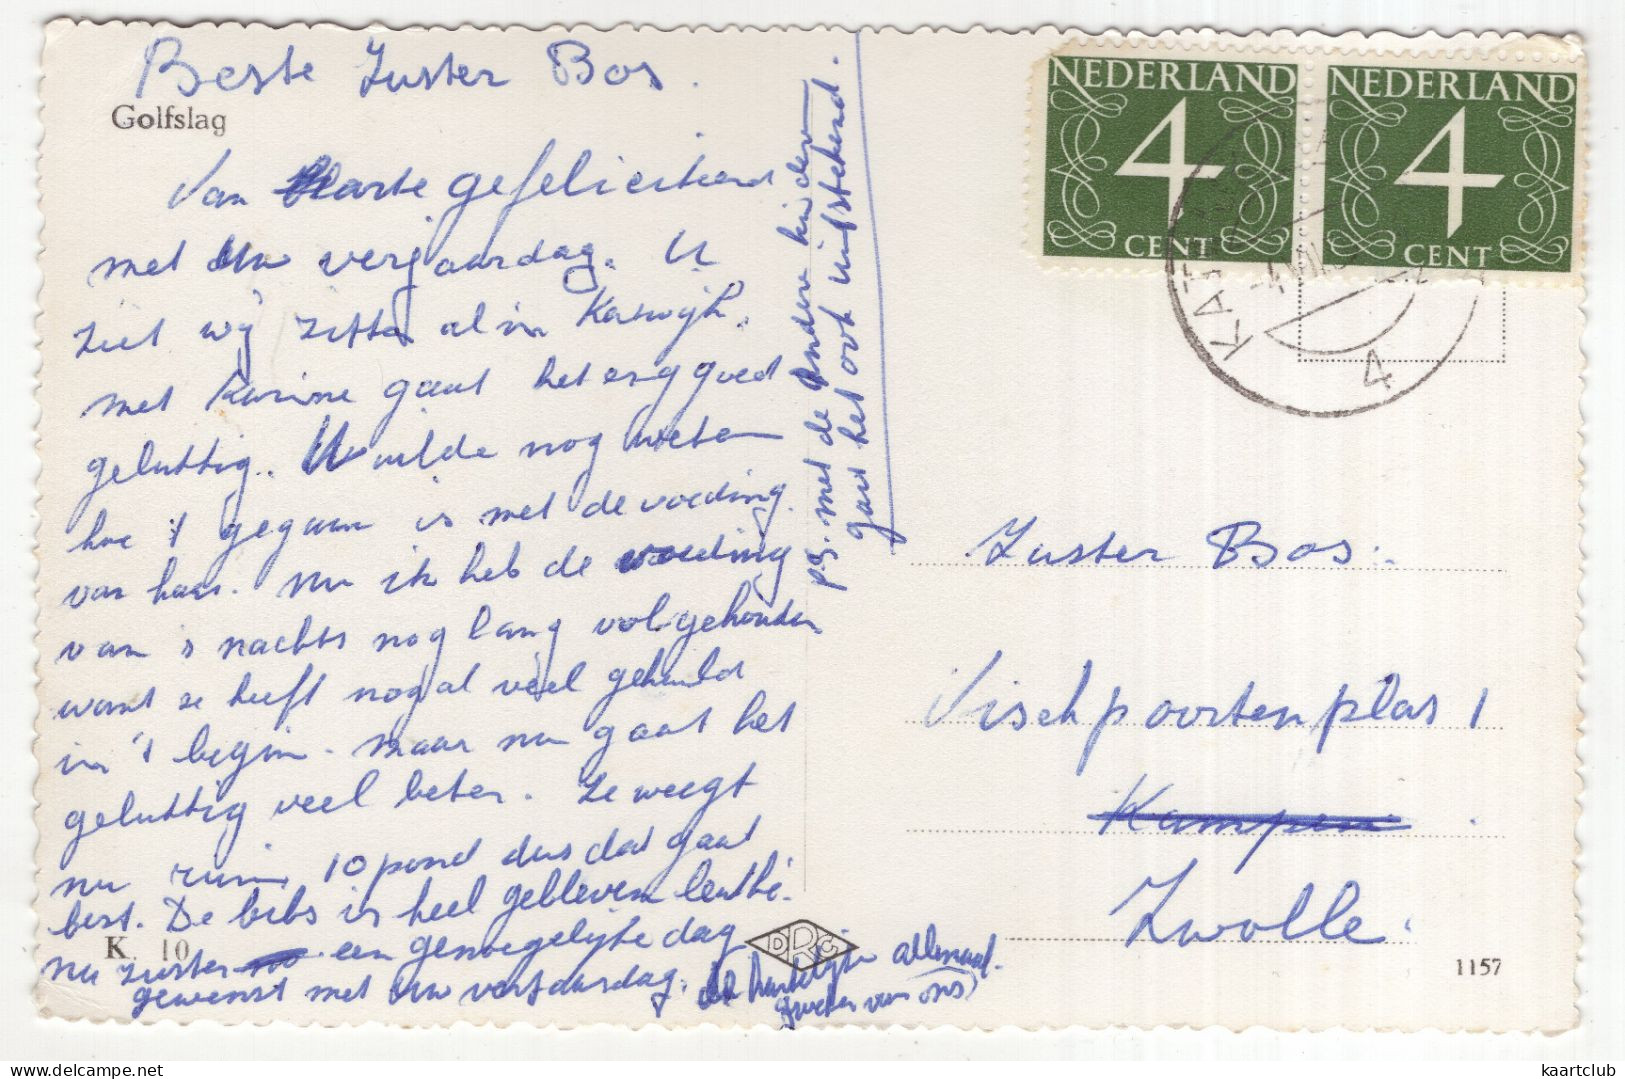 Beste Zuster Bos.
Golfslag
Van Harte gefeliciteerd
met Uw verjaardag. U
ziet wij zitten al in Katwijk.
met Karine gaat het erg goed
gelukkig. U wilde nog weten
hoe 't gegaan is met de voeding
van haar. Nu ik heb de voeding
van 's nachts nog lang volgehouden
want ze heeft nogal veel gehuild
in 't begin. maar nu gaat het
gelukkig veel beter. Ze weegt
nu ruim 10 pond dus dat gaat
best. De bibs is heel gebleven
K. 10
nu zuster een genoegelijke dag
gewenst met Uw verjaardag.
de hartelijke allemaal.
groeten van ons
p.s. met de andere kinderen
gaat het ook uitstekend.
NEDERLAND NEDERLAND
4 4
CENT CENT
KAT
4
Zuster Bos.
Vischpoortenplas 1
Kampen
Zwolle.
DRG
1157
kaartclub